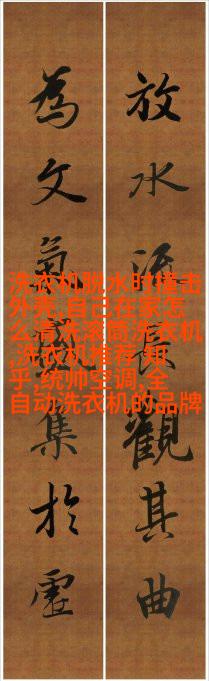 放水長觀其曲
為文氣集於虛
洗衣机脱水时撞击
外壳,自己在家怎
么清洗滚筒洗衣机
,洗衣机推荐 知
乎,统帅空调,全
自动洗衣机的品牌